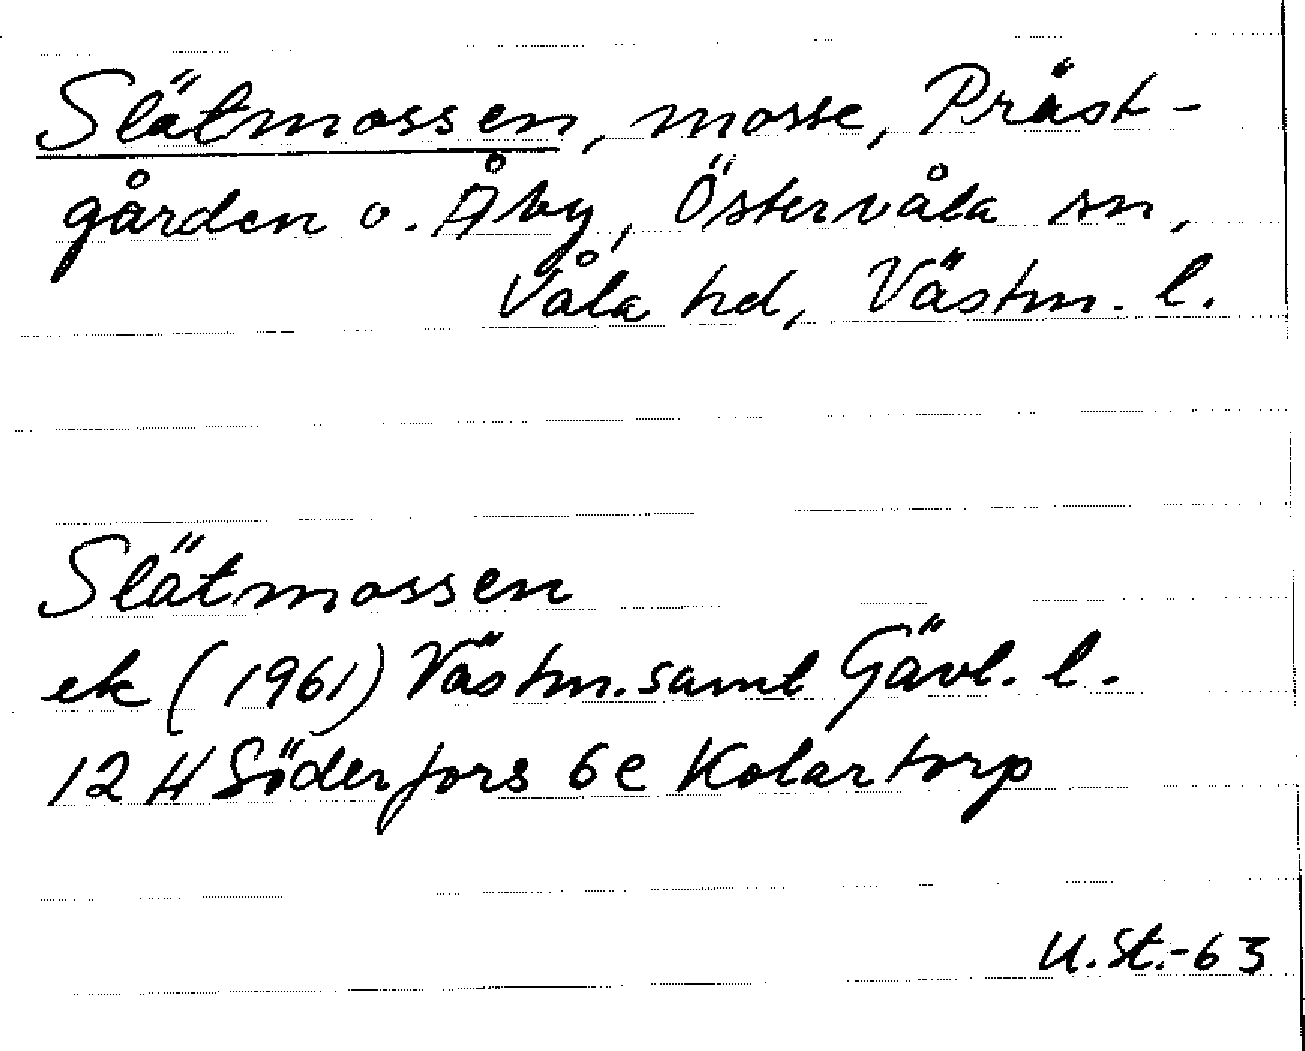 Slätmossen, mosse, Präst-
gården o. Åby, Östervåla sn,
Våla hd, Västm. l.
Slätmossen
ek (1961) Västm. saml Gävl. l.
12 H Söderfors 6e Kolartorp
U.St.-63